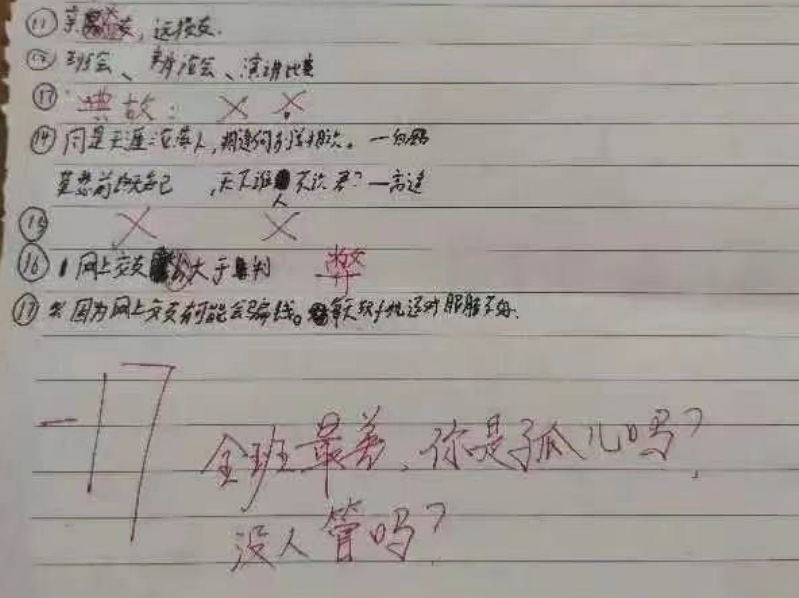 ⑪ 亲 友，远 友.
⑫ 班会、辩论会、演讲比赛
⑬ 典故： × ×
⑭ 同是天涯沦落人，相逢何 相识。—白
莫愁前 知己，天下谁人不识君？—高适
⑮ × ×
⑯ 网上交友 大于 判 弊
⑰ 因为网上交友有可能会骗钱。 手机还对眼睛不好.
-17
全班最差、你是孤儿吗？
没人管吗？